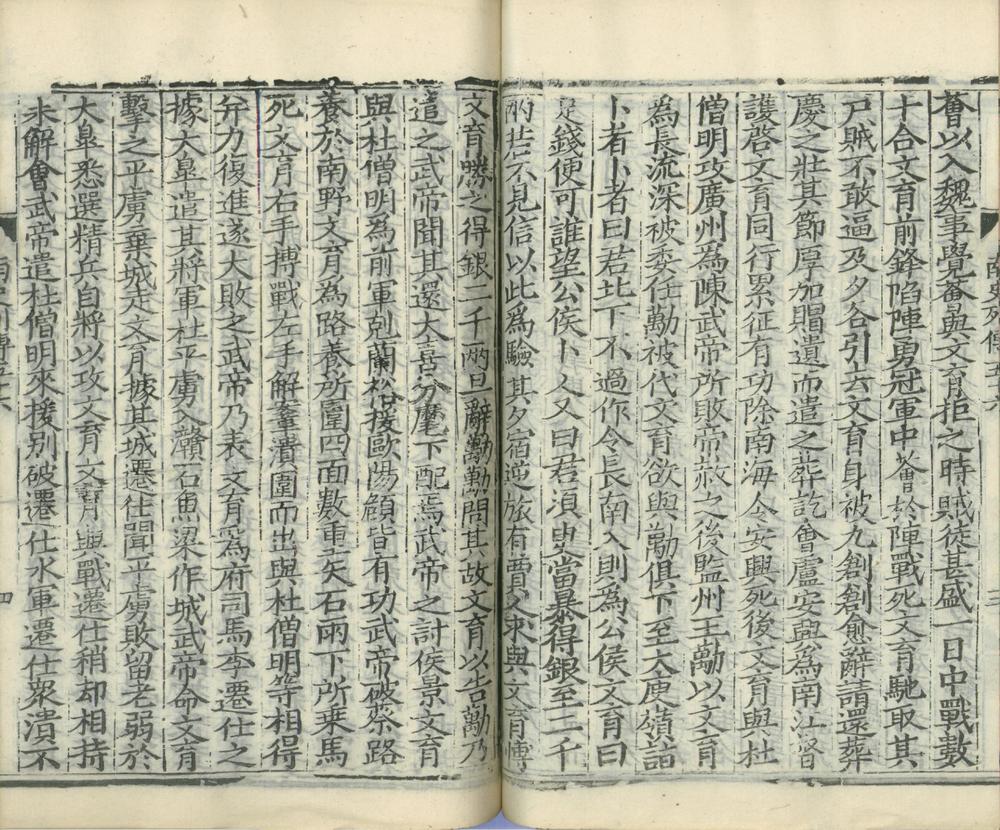 薈以入魏事覺薈與文育拒之時賊徒甚盛一日中戰數
十合文育前鋒陷陣勇冠軍中薈於陣戰死文育馳取其
尸賊不敢逼及夕各引去文育身被九創創愈辭請還葬
慶之壯其節厚加賵遺而遣之葬訖會盧安興為南江督
護啓文育同行累征有功除南海令安興死後文育與杜
僧明攻廣州為陳武帝所敗帝赦之後監州王勱以文育
為長流深被委任勱被代文育欲與勱俱下至大庾嶺詣
卜者卜者曰君北下不過作令長南入則為公侯文育曰
足錢便可誰望公侯卜人又曰君須臾當暴得銀至二千
兩若不見信以此為驗其夕宿逆旅有賈人求與文育博
文育勝之得銀二千兩旦辭勱勱問其故文育以告勱乃
遣之武帝聞其還大喜分麾下配焉武帝之討侯景文育
與杜僧明為前軍剋蘭裕援歐陽頠皆有功武帝破蔡路
養於南野文育為路養所圍四面數重矢石雨下所乗馬
死文育右手搏戰左手解鞌潰圍而出與杜僧明等相得
并力復進遂大敗之武帝乃表文育為府司馬李遷仕之
據大皐遣其將軍杜平虜入灨石魚梁作城武帝命文育
擊之平虜棄城走文育據其城遷仕聞平虜敗留老弱於
大皐悉選精兵自將以攻文育文育與戰遷仕稍却相持
未解會武帝遣杜僧明來援別破遷仕水軍遷仕衆潰不
四